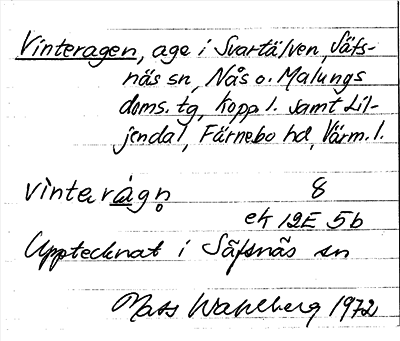 Vinteragen, age i Svartälven, Säfs-
näs sn, Nås o. Malungs
doms. tg, Kopp l. samt Lil-
jendal, Färnebo hd, Värm. l.
vìnterågn̥ 8
ek 12E 5b
Upptecknat i Säfsnäs sn
Mats Wahlberg 1972